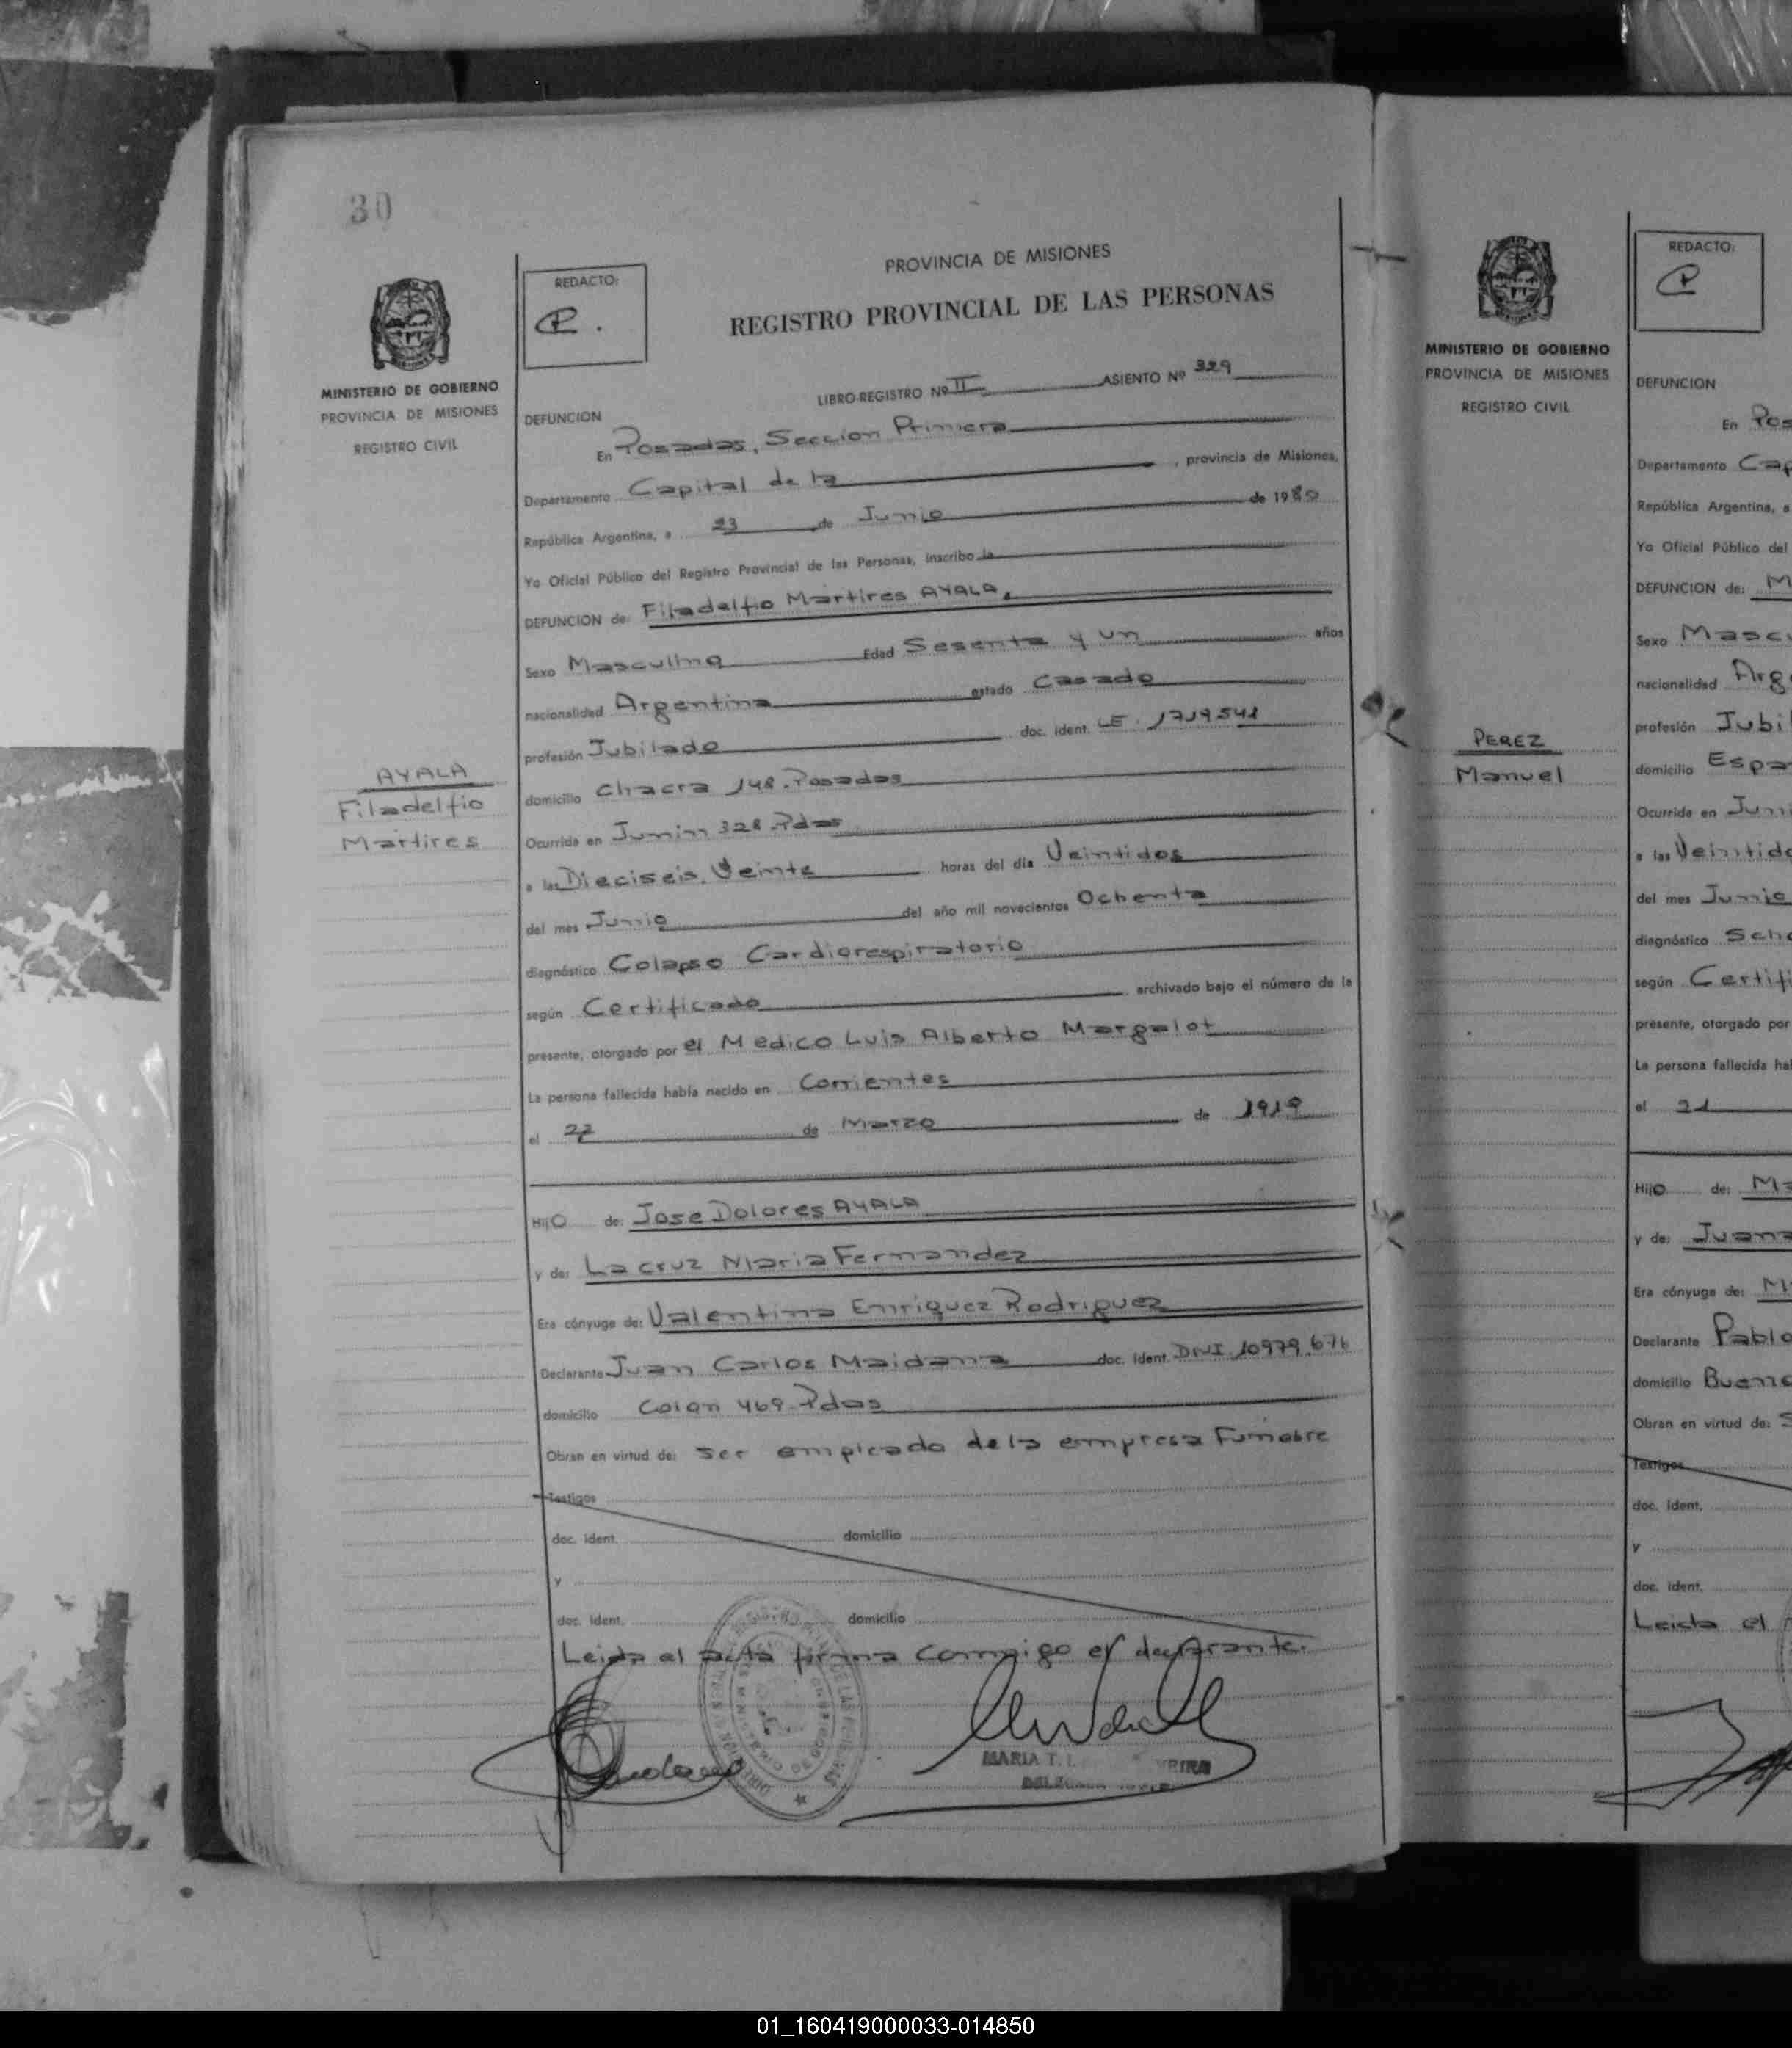 30
MINISTERIO DE GOBIERNO
PROVINCIA DE MISIONES
REGISTRO CIVIL
AYALA
Filadelfio
Martires
REDACTO:
PROVINCIA DE MISIONES
REGISTRO PROVINCIAL DE LAS PERSONAS
LIBRO-REGISTRO Nº II ASIENTO Nº 329
DEFUNCION
En Posadas, Seccion Primera
Departamento Capital de la , provincia de Misiones,
República Argentina, a 23 de Junio de 1980
Yo Oficial Público del Registro Provincial de las Personas, inscribo la
DEFUNCION de: Filadelfio Martires AYALA.
Sexo Masculino Edad Sesenta y un años
nacionalidad Argentina estado Casado
profesión Jubilado doc. ident. LE. 1719541
domicilio Chacra 148. Posadas
Ocurrida en Junin 328. Pdas
a las Dieciseis. Veinte horas del día Veintidos
del mes Junio del año mil novecientos Ochenta
diagnóstico Colapso Cardiorespiratorio
según Certificado archivado bajo el número de la
presente, otorgado por el Medico Luis Alberto Margalot
La persona fallecida había nacido en Corrientes
el 27 de Marzo de 1919
Hijo de: Jose Dolores AYALA
y de: La cruz Maria Fernandez
Era cónyuge de: Valentina Enriquez Rodriguez
Declarante Juan Carlos Maidana doc. ident. DNI. 10979.676
domicilio Colon 469. Pdas
Obran en virtud de: ser empleado de la empresa Funebre
Testigos
doc. ident. domicilio
y
doc. ident. domicilio
Leida el acta firma conmigo el declarante.
MARIA T.
MINISTERIO DE GOBIERNO
PROVINCIA DE MISIONES
REGISTRO CIVIL
PEREZ
Manuel
REDACTO:
DEFUNCION
En Pos
Departamento Cap
República Argentina, a
Yo Oficial Público del
DEFUNCION de: M
Sexo Mascu
nacionalidad Arge
profesión Jubil
domicilio Espa
Ocurrida en Juni
a las Veintido
del mes Junio
diagnóstico
según Certifi
presente, otorgado por
La persona fallecida ha
el 21
Hijo de: Ma
y de: Juana
Era cónyuge de: M
Declarante Pablo
domicilio Bueno
Obran en virtud de: S
Testigos
doc. ident.
y
doc. ident.
Leida el
01_160419000033-014850